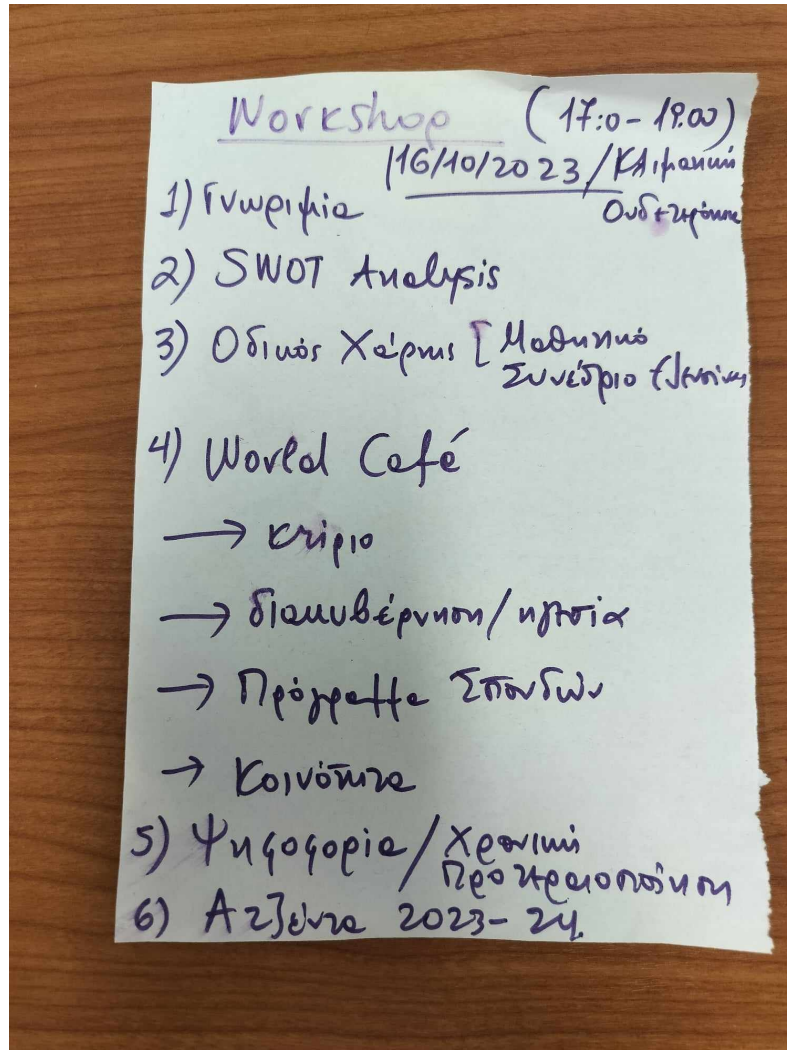 Workshop (17:0 - 19.00)
16/10/2023 / Κλιματική
Ουδετερότητα
1) Γνωριμία
2) SWOT Analysis
3) Οδικός Χάρτης [ Μαθητικό
Συνέδριο
4) World Café
→ κτίριο
→ διακυβέρνηση / ηγεσία
→ Πρόγραμμα Σπουδών
→ Κοινότητα
5) Ψηφοφορία / Χρονική
Προτεραιοποίηση
6) Ατζέντα 2023-24.